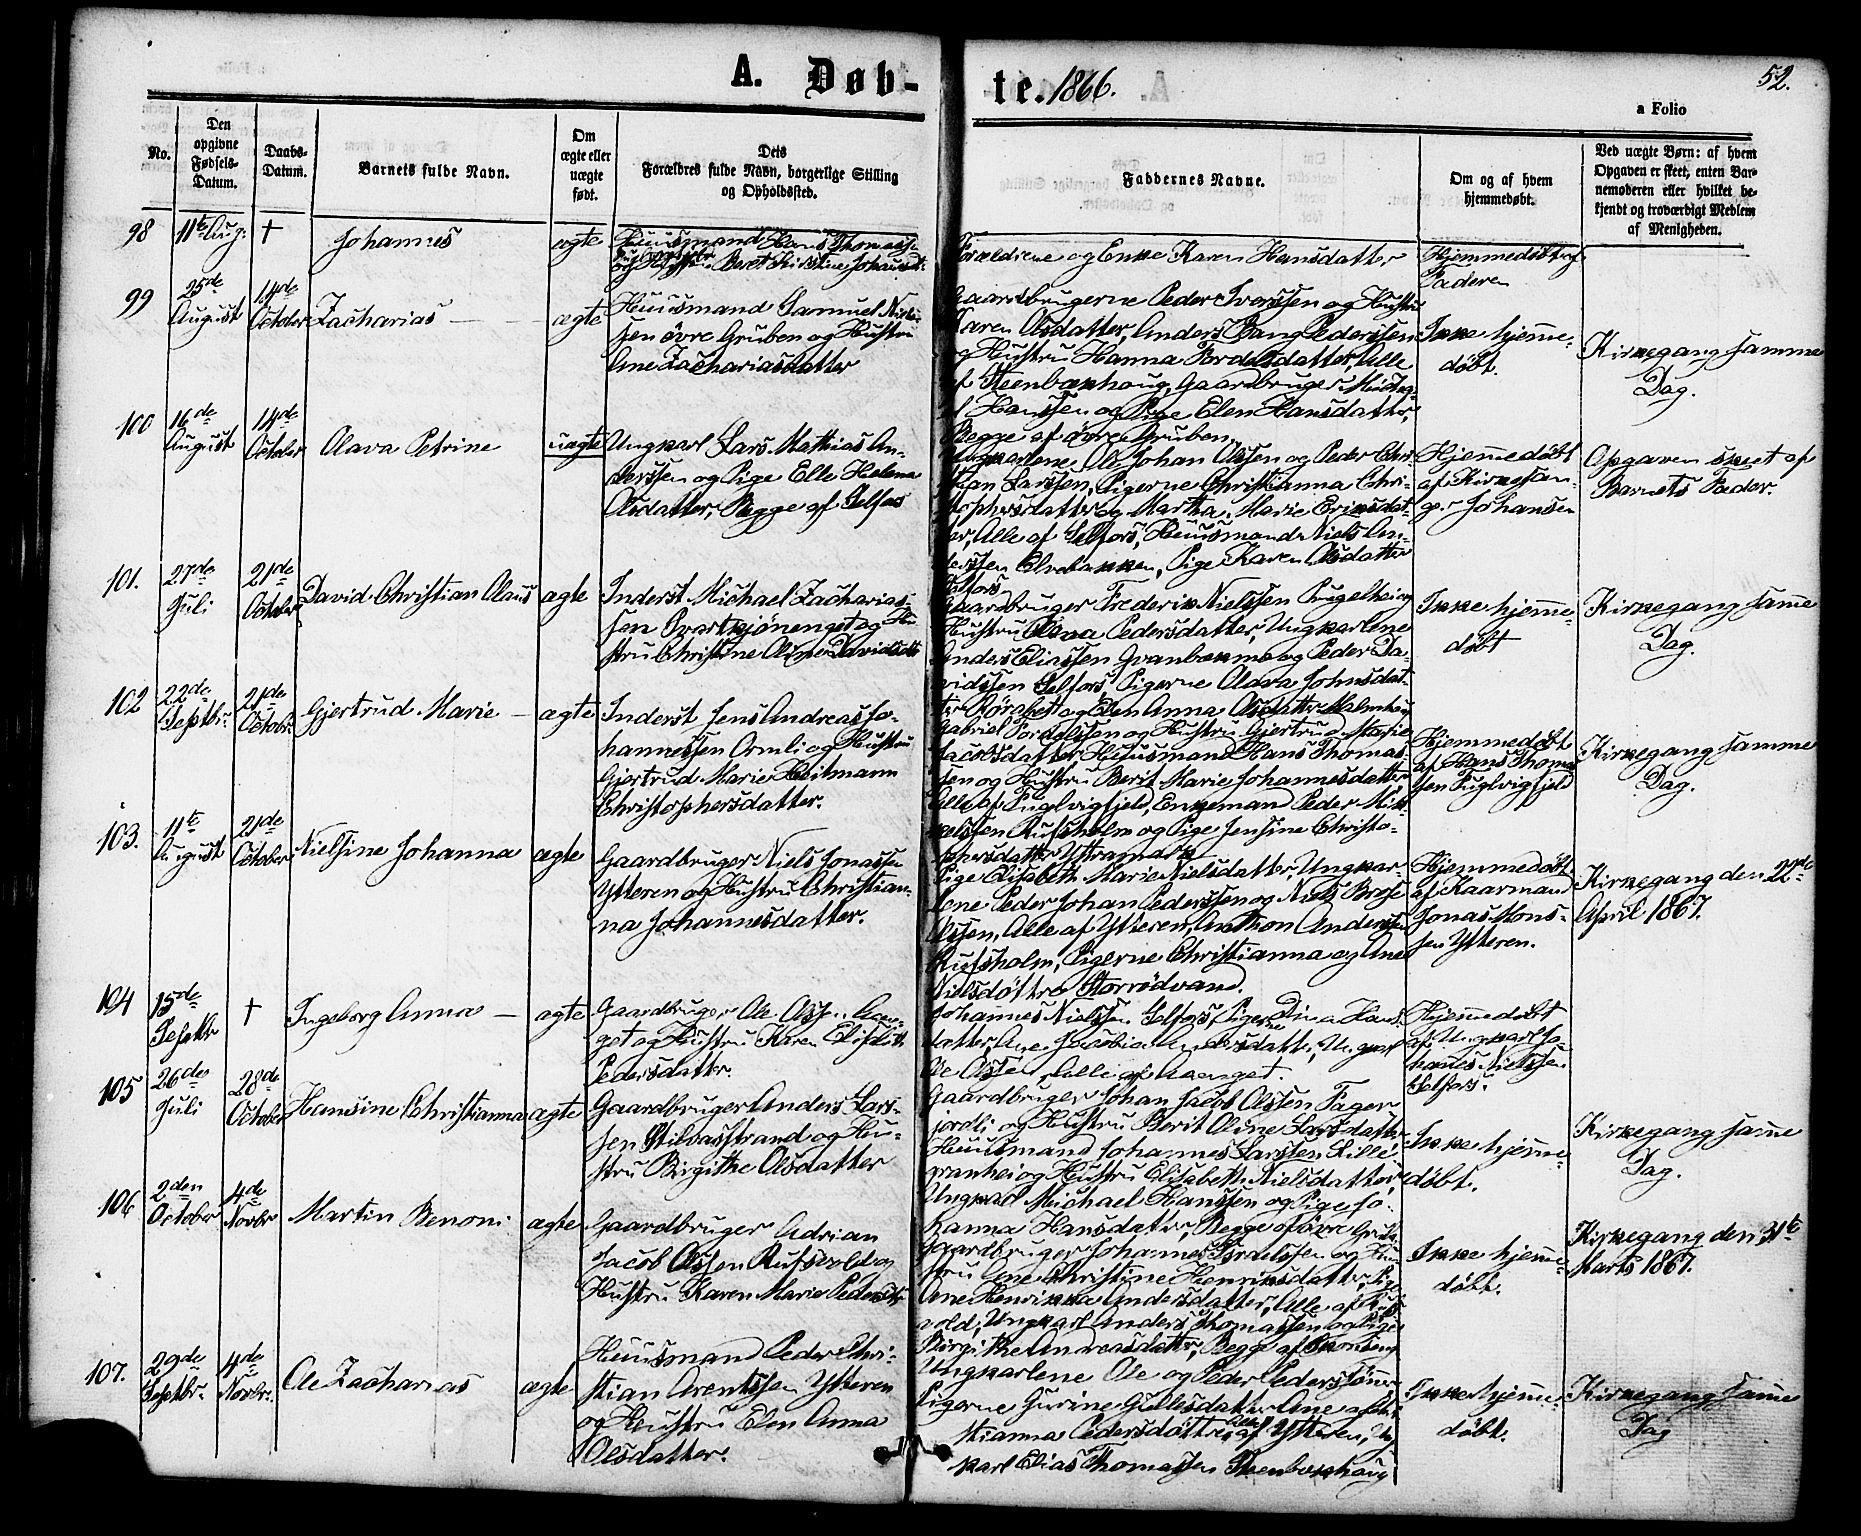 A. Døb-
te. 1866.
52.
a Folio
No.
Den opgivne Fødsels-Datum.
Daabs-Datum.
Barnets fulde Navn.
Om ægte eller uægte født.
Dets Forældres fulde Navn, borgerlige Stilling og Opholdssted.
Faddernes Navne.
Om og af hvem hjemmedøbt.
Ved uægte Børn: af hvem Opgaven er skeet, enten Barnemoderen eller hvilket bekjendt og troværdigt Medlem af Menigheden.
98
11te Aug:
†
Johannes
ægte
Huusmand Hans Thomas-
Forældrene og Enke Karen Hansdatter
Hjemmedøbt af
Faderen
99
25de
August
14de
October
Zacharias
ægte
Huusmand Samuel
sen övre Gruben og Hustru
Ane Zachariasdatter
Gaardbrugerne Peder Ivarssen og Hustru
Karen Olsdatter, Anders Bang Pederssen
og Hustru Hanna Tordelsdatter, Alle
af Steenbækhaug, Gaardbruger
Hanssen og Pige Elen Hansdatter,
Begge af övre Gruben.
Ikke hjemme-
døbt.
Kirkegang samme
Dag.
100
16de
August
14de
October
Olava Petrine
uægte
Ungkarl Lars Mathias An-
derssen og Pige Elle Helena
Olsdatter, Begge af Selfors
Ungkarlene Ole Johan Olssen og Peder Chri-
stian Larssen, Pigerne Christianna Chri-
stophersdatter og Martha Marie Eriksdat-
ter, Alle af Selfors, Huusmand Niels An-
derssen Elvebakken, Pige Karen Olsdatter
Selfors
Hjemmedøbt
af Kirkesan-
ger Johansen
Opgaven skeet af
Barnets Fader.
101.
27de
Juli
21de
October
David Christian Olaus
ægte
Inderst Michael Zacharias-
sen Svartkjönenget og Hu-
stru Christine Oline Davidsdtr
Gaardbruger Frederik Nielssen Fugelhei og
Hustru Pedersdatter, Ungkarlene
Anders Eliassen Granbækmo og Peder Da-
vidssen Selfors, Pigerne Olava Johnsdat-
ter og Elen Anna Olsdatter
Ikke hjemme-
døbt
Kirkegang samme
Dag.
102
22de
Septbr.
21de
Octobr.
Gjertrud Marie
ægte
Inderst Jens Andreas Jo-
hannessen Ormli og Hustru
Gjertrud Marie Heitmann
Christophersdatter.
Gabriel Tordelssen og Hustru Gjertrud Marie
Jacobsdatter, Huusmand Hans Thomas-
sen og Hustru Berit Marie Johannesdatter
Alle af Fuglvigfjeld, Enkemand Peder Mik-
kelssen Rufsholm og Pige Jensine Christo-
phersdatter Ytteramark
Hjemmedøbt
af Hans Thomas-
sen Fuglvigfjeld
Kirkegang samme
Dag.
103.
11te
August
21de
October
Nielsine Johanna
ægte
Gaardbruger Niels Jonassen
Ytteren og Hustru Christian-
na Johannesdatter.
Pige Elisabeth Marie Nielsdatter, Ungkar-
lene Peder Johan Pederssen og Niels
Olssen, Alle af Ytteren, Anthon Anderssen
Rufsholm, Pigerne Christianna og Ane
Nielsdøttre Storrödvand.
Hjemmedøbt
af Kaarmand
Jonas Mons-
sen Ytteren.
Kirkegang den 22de
April 1867.
104
15de
Septbr
†
Ingeborg Anna
ægte
Gaardbruger Ole Olssen Aaen-
get og Hustru Karen
Pedersdatter.
Johannes Nielssen Selfors, Pigerne Dina Hans-
datter, Ane Jacobia Andersdatter, Ungkarl
Ole Olssen, Alle af Aaenget.
Hjemmedøbt
af Ungkarl Jo-
hannes Nielssen
Selfors.
105
26de
Juli
28de
October
Hansine Christianna
ægte
Gaardbruger Anders Lars-
sen Stilvasstrand og Hu-
stru Birgithe Olsdatter
Gaardbruger Johan Jacob Olssen Fager
jordli og Hustru Berit Oline Larsdatter
Huusmand Johannes Larsten Lille
granhei og Hustru Elisabeth Nielsdatter,
Ungkarl Michael Hanssen og Pige Jo-
hanna Hansdatter, Begge af övre Gruben
Ikke hjemme-
døbt.
Kirkegang samme
Dag.
106
2den
October
4de
Novbr
Martin Benoni
ægte
Gaardbruger Adrian
Jacob Olssen Rufsvold og
Hustru Karen Marie Pedersdtr
Gaardbruger Johannes Tordelssen og Hu-
stru Ane Christine Henriksdatter, Pige
Ane Henrikka Andersdatter, Alle af Rufs-
vold, Ungkarl Anders Thomassen og Pige
Birgithe Andreasdatter, Begge af
Ikke hjemme-
døbt.
Kirkegang den 31te
Marts 1867.
107.
29de
Septbr.
4de
Novbr.
Ole Zacharias
ægte
Huusmand Peder Chri-
stian Arentssen Ytteren
og Hustru Elen Anna
Olsdatter.
Ungkarlene Ole og Peder Pederssönner
Pigerne Gurine Gullesdatter, Ane og Chri-
stianna Pedersdøttre, Alle af Ytteren, Ung-
karl Elias Thomassen Steenbækhaug
Ikke hjemme-
døbt.
Kirkegang samme
Dag